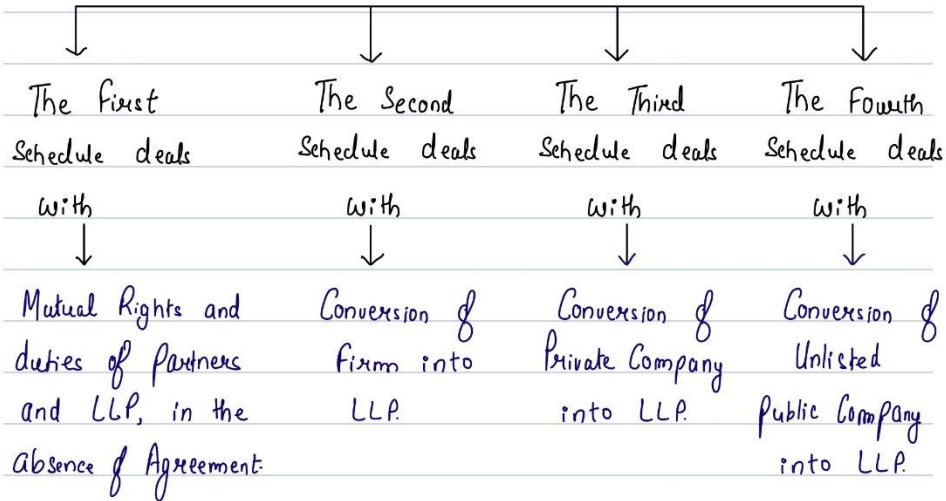 The First
Schedule deals
with
Mutual Rights and
duties of Partners
and LLP, in the
absence of Agreement.
The Second
Schedule deals
with
Conversion of
Firm into
LLP.
The Third
Schedule deals
with
Conversion of
Private Company
into LLP.
The Fourth
Schedule deals
with
Conversion of
Unlisted
Public Company
into LLP.